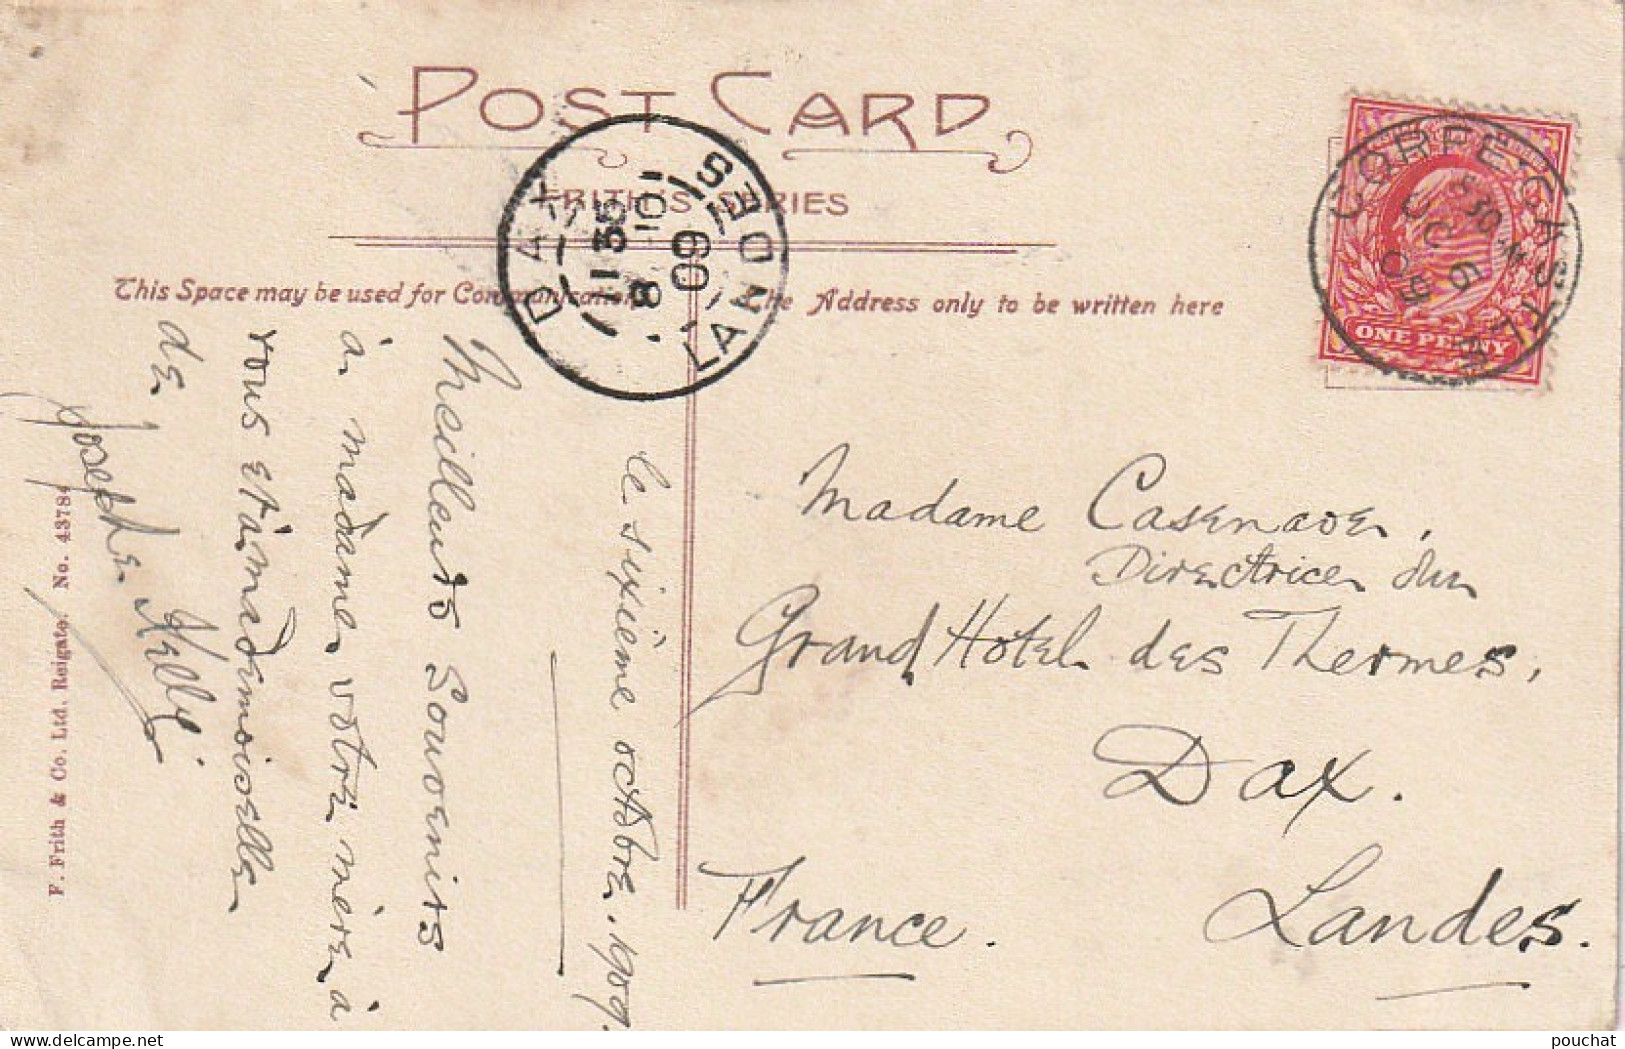 POST CARD
FRITH'S SERIES
This Space may be used for Communication
The Address only to be written here
DAX LANDES
13 35
8 -10
09
CORFE-CASTLE
OC 6
09
ONE PENNY
le sixième octobre. 1909.
Meilleurs Souvenirs
à madame votre mère à
vous et à mademoiselle
de
Josephe Kelly
Madame Casenave,
Directrice du
Grand Hotel des Thermes,
Dax.
Landes.
France.
F. Frith & Co. Ltd. Reigate. No. 43784
delcampe.net
pouchat